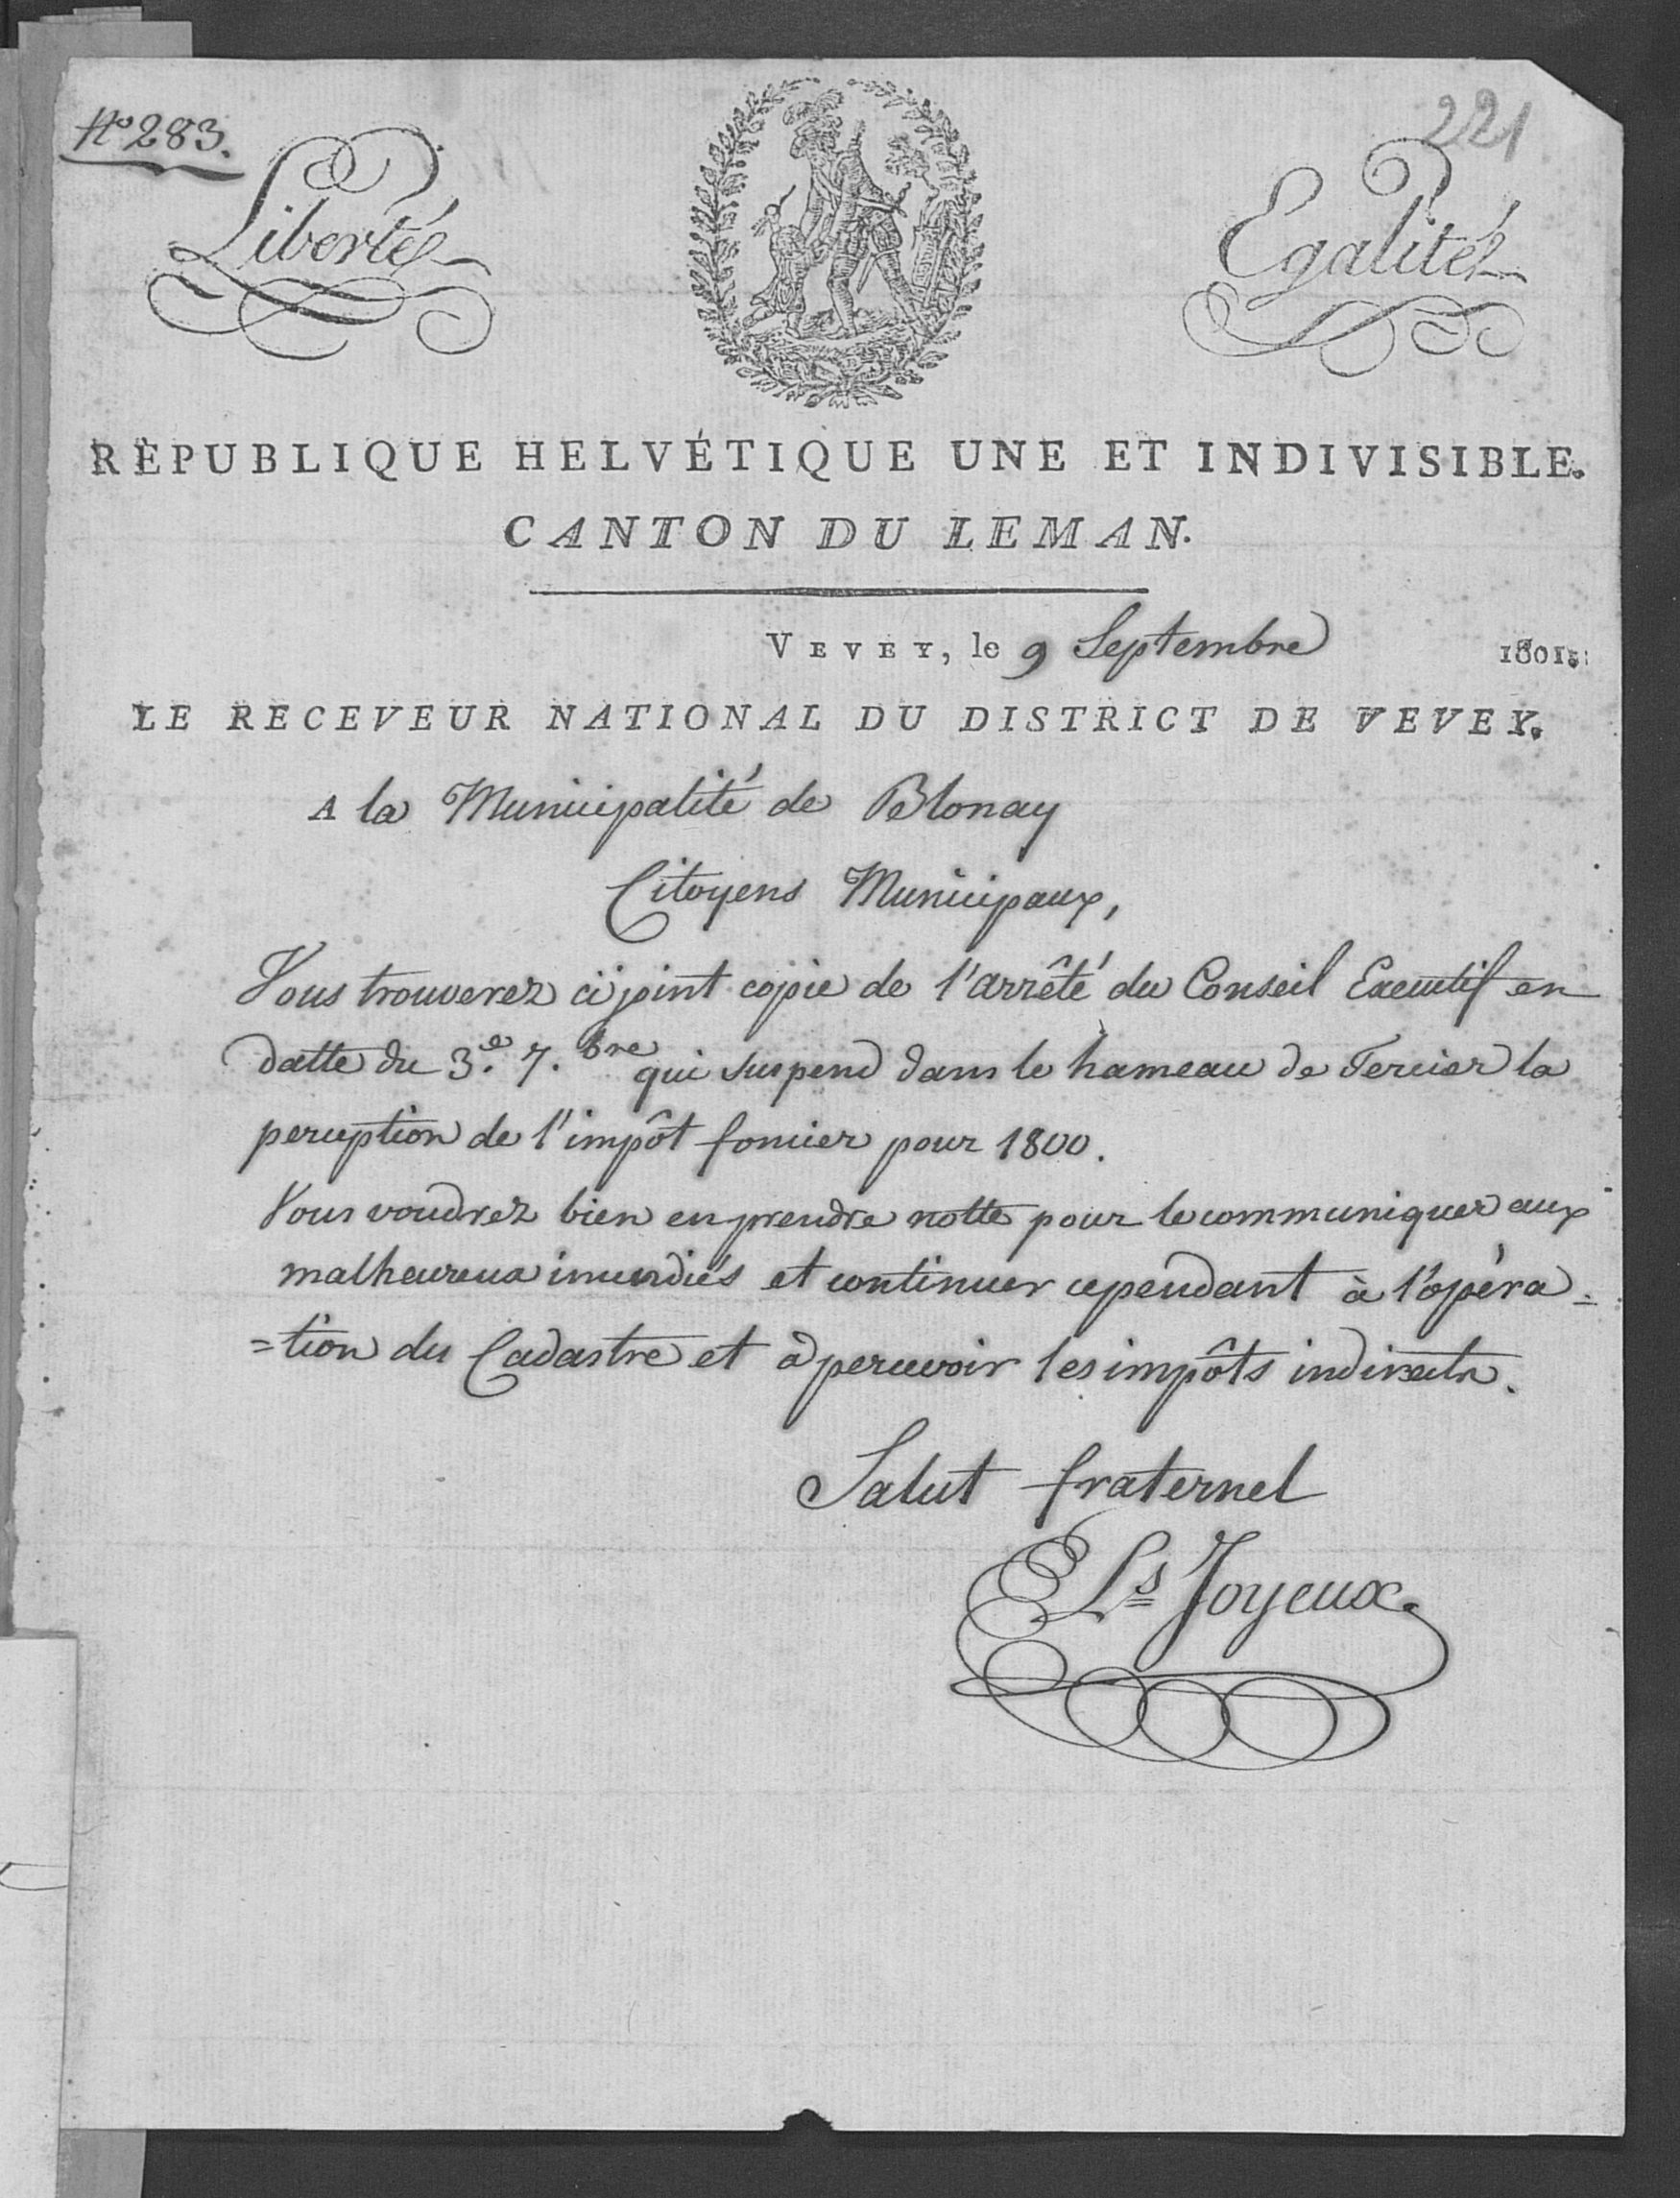 N.º 283.
221
Liberté
Egalité
RÉPUBLIQUE HELVÉTIQUE UNE ET INDIVISIBLE.
CANTON DU LEMAN.
VEVEY, le 9 Septembre 1801.
LE RECEVEUR NATIONAL DU DISTRICT DE VEVEY.
A la Municipalité de Blonay
Citoyens Municipaux,
Vous trouverez ci joint copie de l'arrêté du Conseil Executif en
datte du 3.e 7.bre qui suspend dans le hameau de Tercier la
perception de l'impôt foncier pour 1800.
Vous voudrez bien en prendre notte pour le communiquer aux
malheureux incendiés et continuer cependant à l'opéra=
=tion du Cadastre et à percevoir les impôts indirects.
Salut fraternel
Ls Joyeux